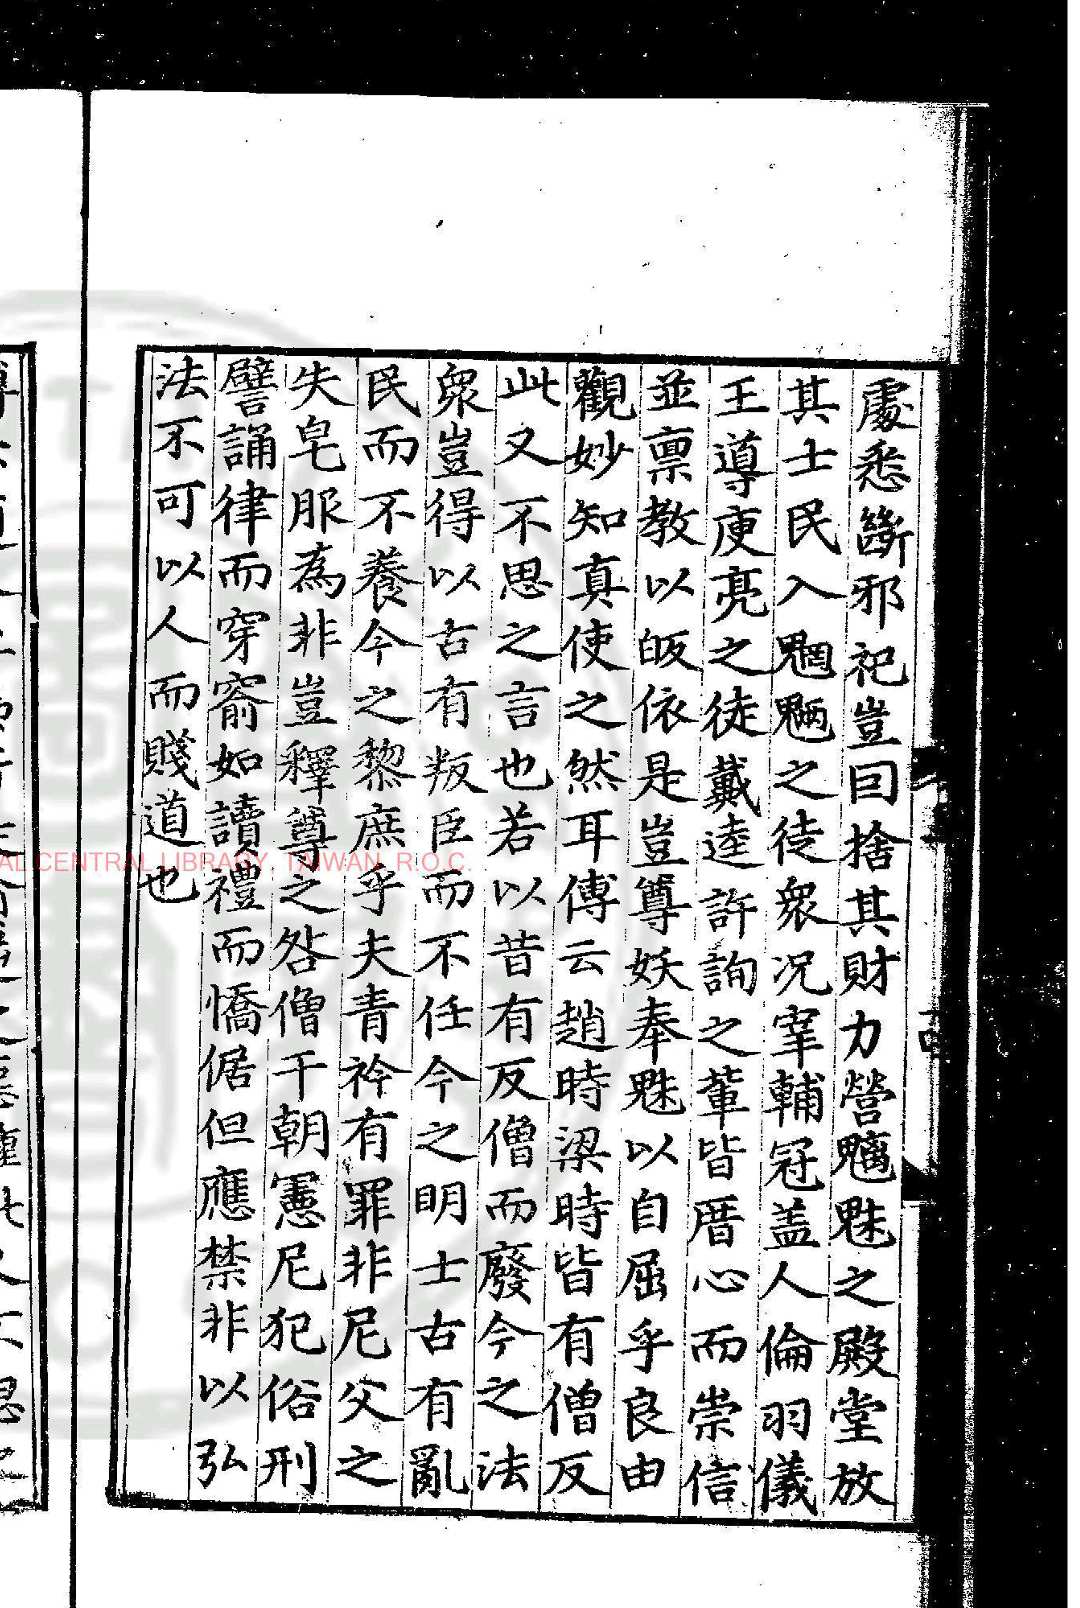 處悉斷邪祀豈曰捨其財力營魑魅之殿堂放
其士民入魍魎之徒眾况宰輔冠盖人倫羽儀
王導庾亮之徒戴逵許詢之輩皆厝心而崇信
並禀教以皈依是豈尊妖奉魅以自屈乎良由
觀妙知真使之然耳傅云趙時梁時皆有僧反
此又不思之言也若以昔有反僧而廢今之法
眾豈得以古有叛臣而不任今之明士古有亂
民而不養今之黎庶乎夫青衿有罪非尼父之
失皂服為非豈釋尊之咎僧干朝憲尼犯俗刑
譬誦律而穿窬如讀禮而憍倨但應禁非以弘
法不可以人而賤道也
AL CENTRAL LIBRARY, TAIWAN, R.O.C.